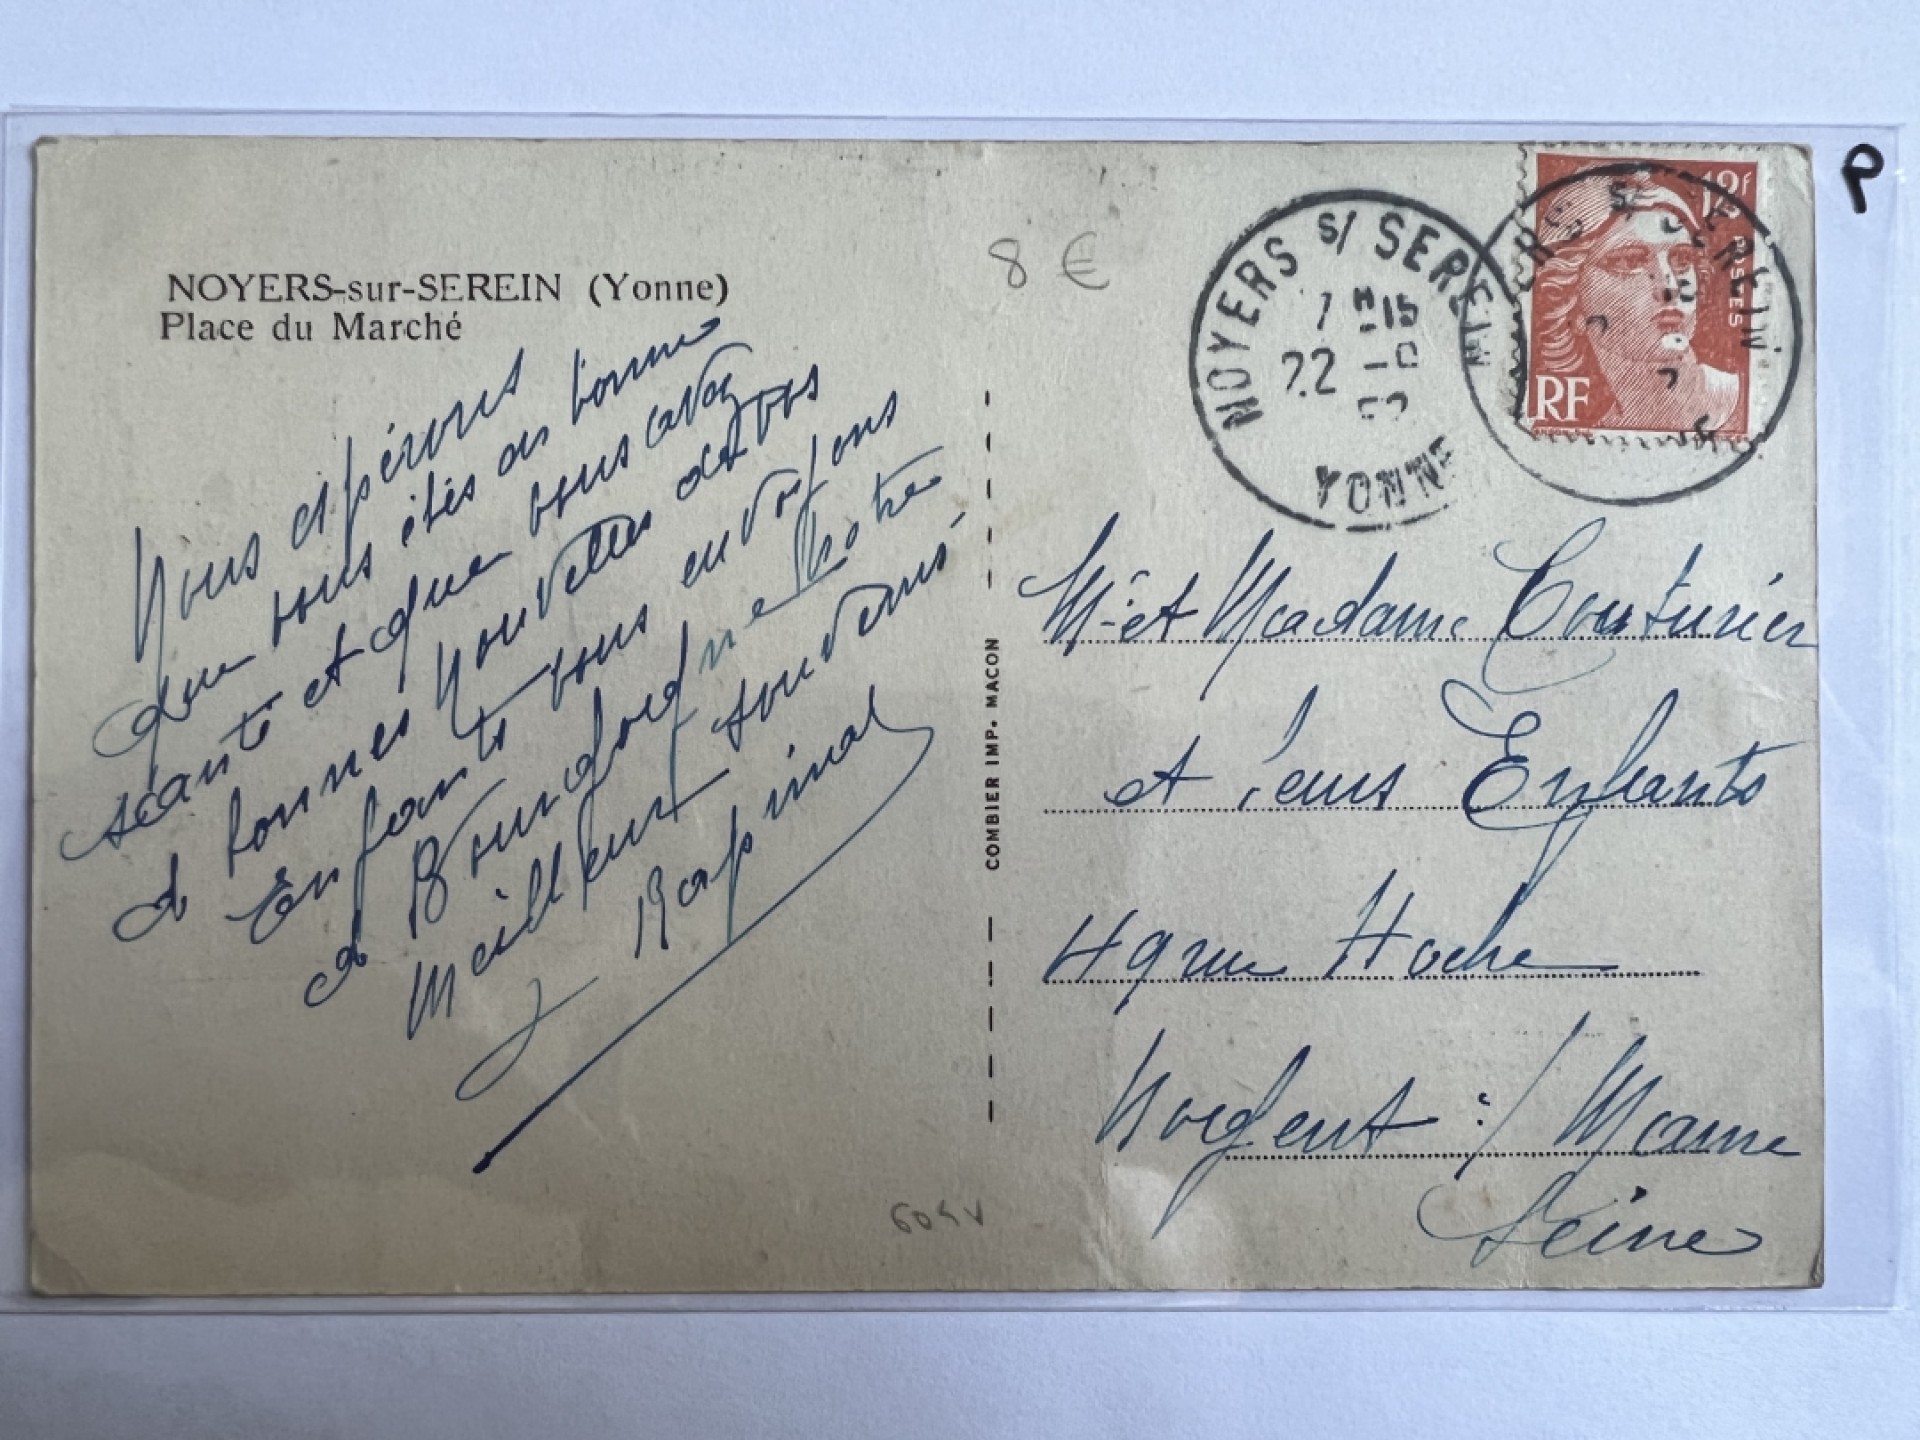 NOYERS-sur-SEREIN (Yonne)
Place du Marché
Nous espérons
que vous êtes en bonne
santé et que vous avez
de bonnes nouvelles de vos
Enfants vous envoyons
de Bourgogne Notre
Meilleur souvenir
Rapinat
8 €
COMBIER IMP. MACON
NOYERS S/ SEREIN
7 H 15
22
YONNE
12f
POSTES
RF
Mr et Madame Couturier
et leurs Enfants
49 rue Hoche
Nogent s/ Marne
Seine
P